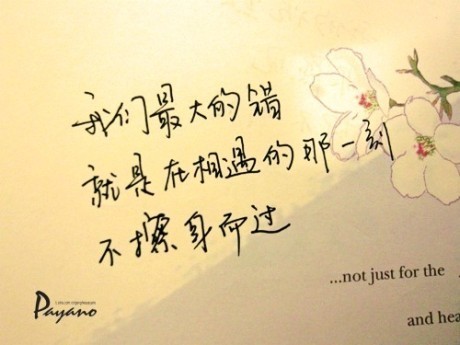 我们最大的错
就是在相遇的那一刻
不擦身而过
...not just for the
and hea
Payano